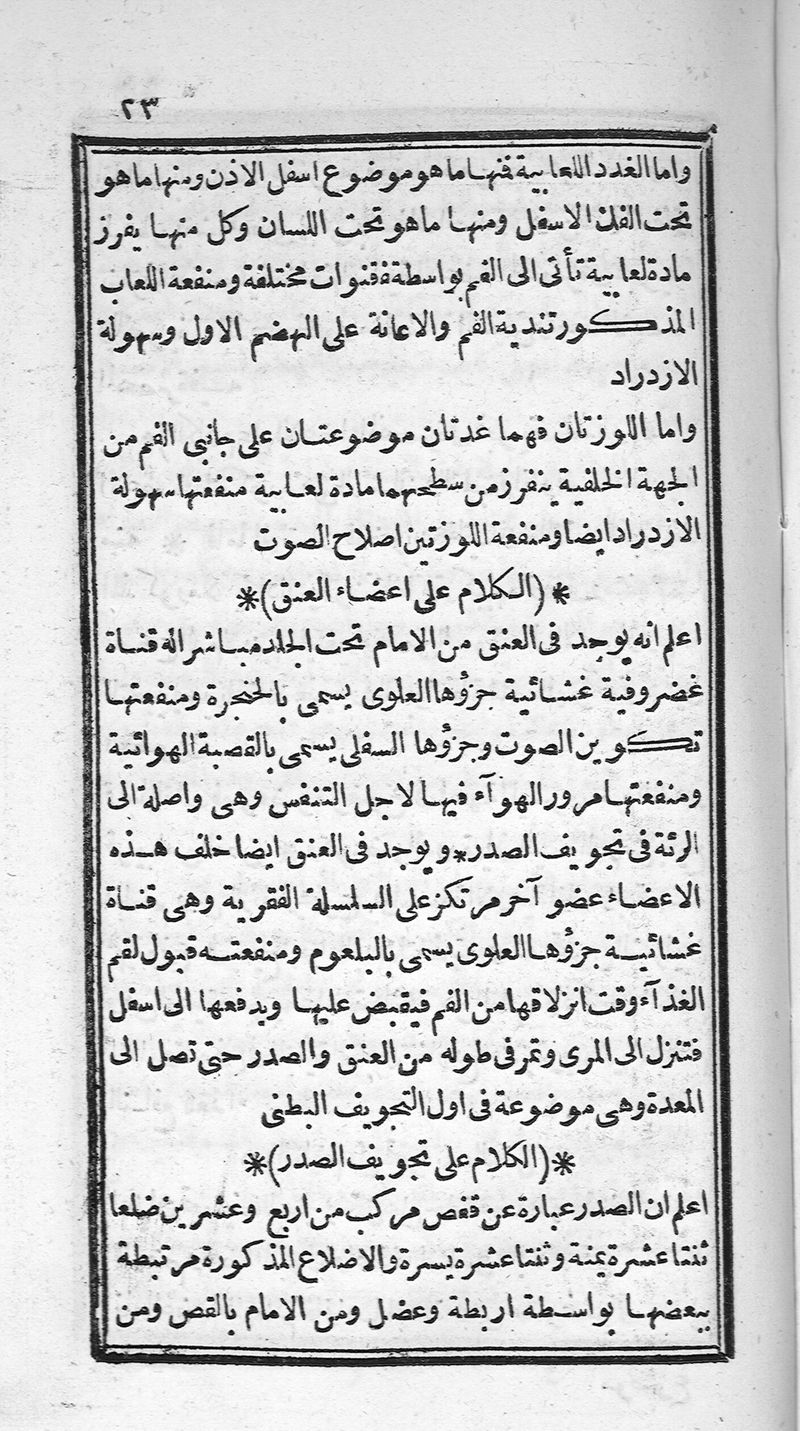 ٢٣
واما الغدد اللعابية فنها ما هو موضوع اسفل الاذن ومنها ما هو
تحت الفك الاسفل ومنها ما هو تحت اللسان وكل منها يفرز
مادة لعابية تأتى الى الفم بواسطة قنوات مختلفة ومنفعة اللعاب
المذكور تندية الفم والاعانة على الهضم الاول وسهولة
الازدراد
واما اللوزتان فهما غدتان موضوعتان على جانبى الفم من
الجهة الخلفية ينفرز من سطحهما مادة لعابية منفعتها سهولة
الازدراد ايضا ومنفعة اللوزتين اصلاح الصوت
*(الكلام على اعضاء العنق)*
اعلم انه يوجد فى العنق من الامام تحت الجلد مباشرا له قناة
غضروفية غشائية جزؤها العلوى يسمى بالحنجرة ومنفعتها
تكوين الصوت وجزؤها السفلى يسمى بالقصبة الهوائية
ومنفعتها مرور الهوآء فيها لاجل التنفس وهى واصلة الى
الرئة فى تجويف الصدر * ويوجد فى العنق ايضا خلف هذه
الاعضاء عضو آخر مرتكز على السلسلة الفقرية وهى قناة
غشائية جزؤها العلوى يسمى بالبلعوم ومنفعته قبول لقم
الغذآء وقت انزلاقها من الفم فيقبض عليها ويدفعها الى اسفل
فتنزل الى المرى وتمر فى طوله من العنق والصدر حتى تصل الى
المعدة وهى موضوعة فى اول التجويف البطنى
*(الكلام على تجويف الصدر)*
اعلم ان الصدر عبارة عن قفص مركب من اربع وعشرين ضلعا
ثنتا عشرة يمنة وثنتا عشرة يسرة والاضلاع المذكورة مرتبطة
ببعضها بواسطة اربطة وعضل ومن الامام بالقص ومن